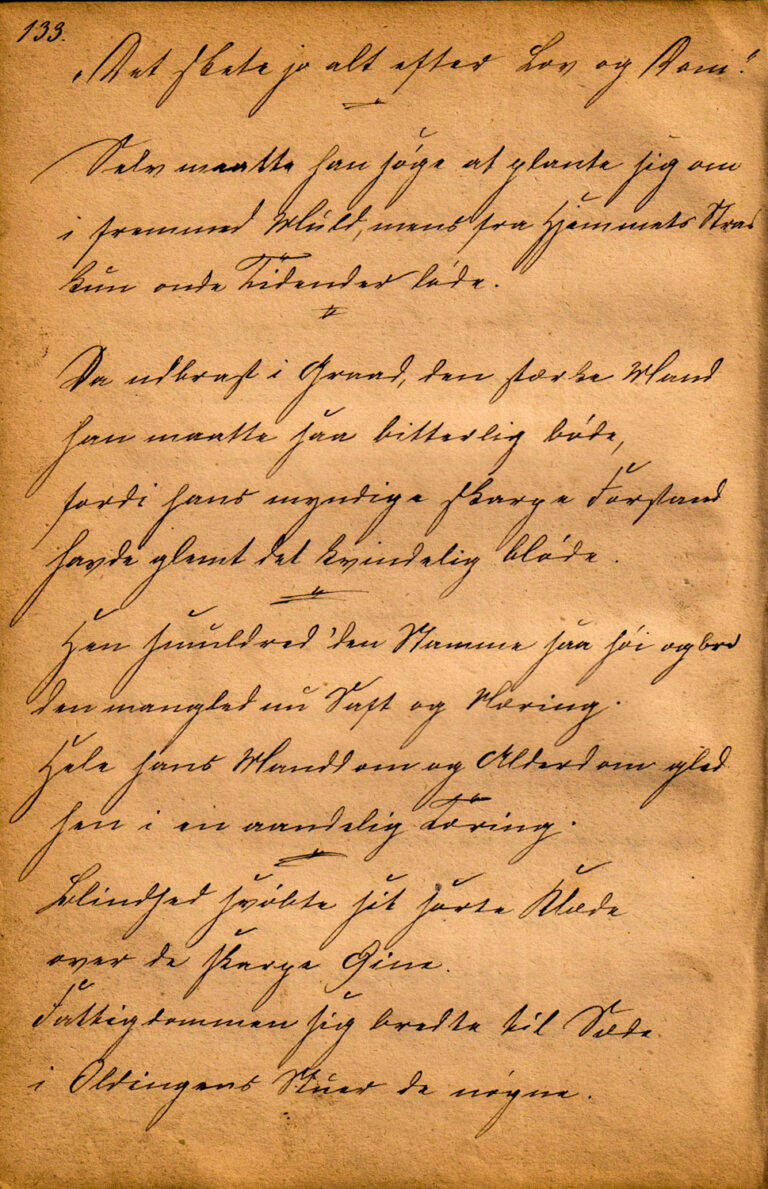 133.
„Det skete jo alt efter Lov og Dom."
Selv maatte han søge at plante sig om
i fremmed Muld, mens fra Hjemmets Stra
kun onde Tidender løde.
Da udbrast i Graad, den stærke Mand
han maatte saa bitterlig bøde,
fordi hans myndige skarpe Forstand
havde glemt det kvindelig bløde.
Hen smuldred' den Stamme saa høi og bre
den mangled nu Saft og Næring.
Hele hans Manddom og Alderdom gled
hen i en aandelig Tæring.
Blindhed svøbte sit sorte Klæde
over de skarpe Øine.
Fattigdommen sig bredte til Sæde
i Oldingens Stuer de nøgne.